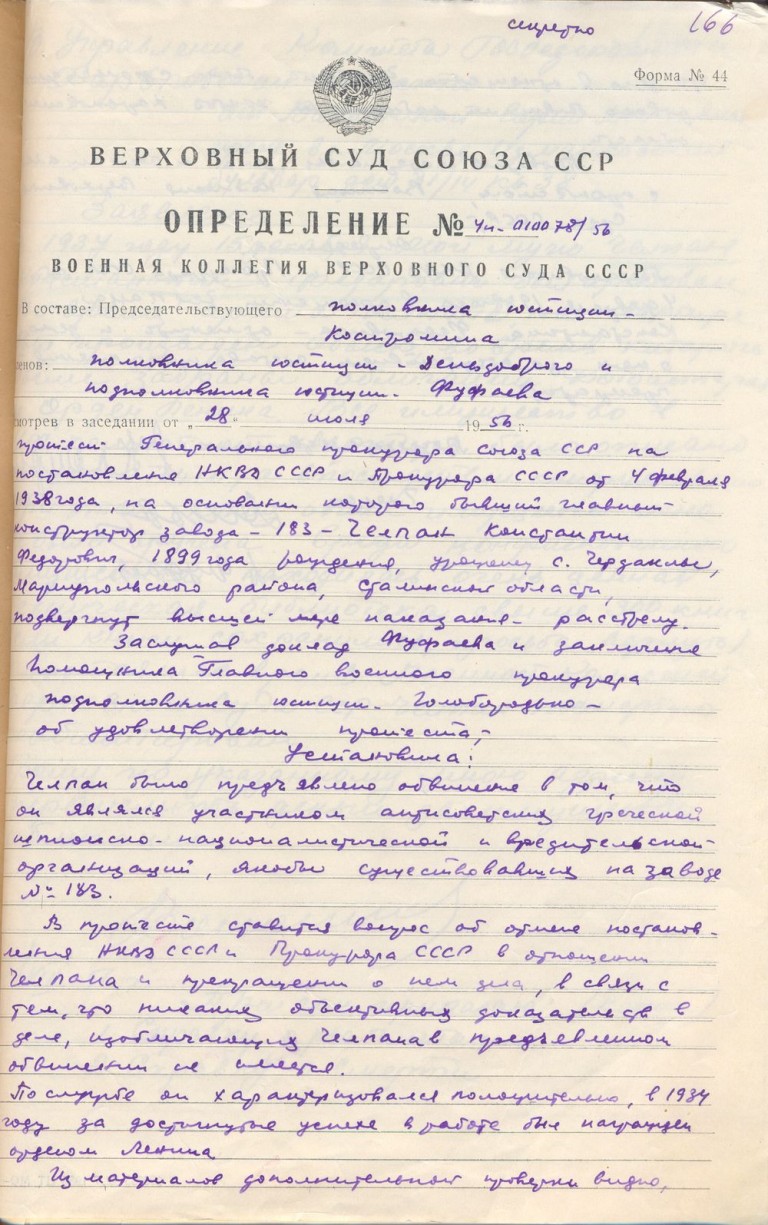 секретно
166
Форма № 44
ВЕРХОВНЫЙ СУД СОЮЗА ССР
ОПРЕДЕЛЕНИЕ № 4н-010078/56
ВОЕННАЯ КОЛЛЕГИЯ ВЕРХОВНОГО СУДА СССР
В составе: Председательствующего полковника юстиции -
Костромина
енов: полковника юстиции - Деньдоброго и
подполковника юстиции - Фуфаева
мотрев в заседании от „28" июля 1956 г.
протест Генерального прокурора Союза ССР на
постановление НКВД СССР и Прокурора СССР от 4 февраля
1938 года, на основании которого бывший главный
конструктор завода - 183 - Челпан Константин
Федорович, 1899 года рождения, уроженец с. Чердаклы,
Мариупольского района, Сталинской области,
подвергнут высшей мере наказания - расстрелу.
Заслушав доклад Фуфаева и заключение
Помощника Главного военного прокурора
подполковника юстиции - Голобородько -
об удовлетворении протеста,-
Установила:
Челпан было предъявлено обвинение в том, что
он являлся участником антисоветских греческой
шпионско-националистической и вредительской
организаций, якобы существовавших на заводе
№ 183.
В протесте ставится вопрос об отмене постанов-
ления НКВД СССР и Прокурора СССР в отношении
Челпана и прекращении о нем дела, в связи с
тем, что никаких объективных доказательств в
деле, изобличающих Челпана в предъявленном
обвинении не имеется.
По службе он характеризовался положительно, в 1934
году за достигнутые успехи в работе был награжден
орденом Ленина
Из материалов дополнительной проверки видно,